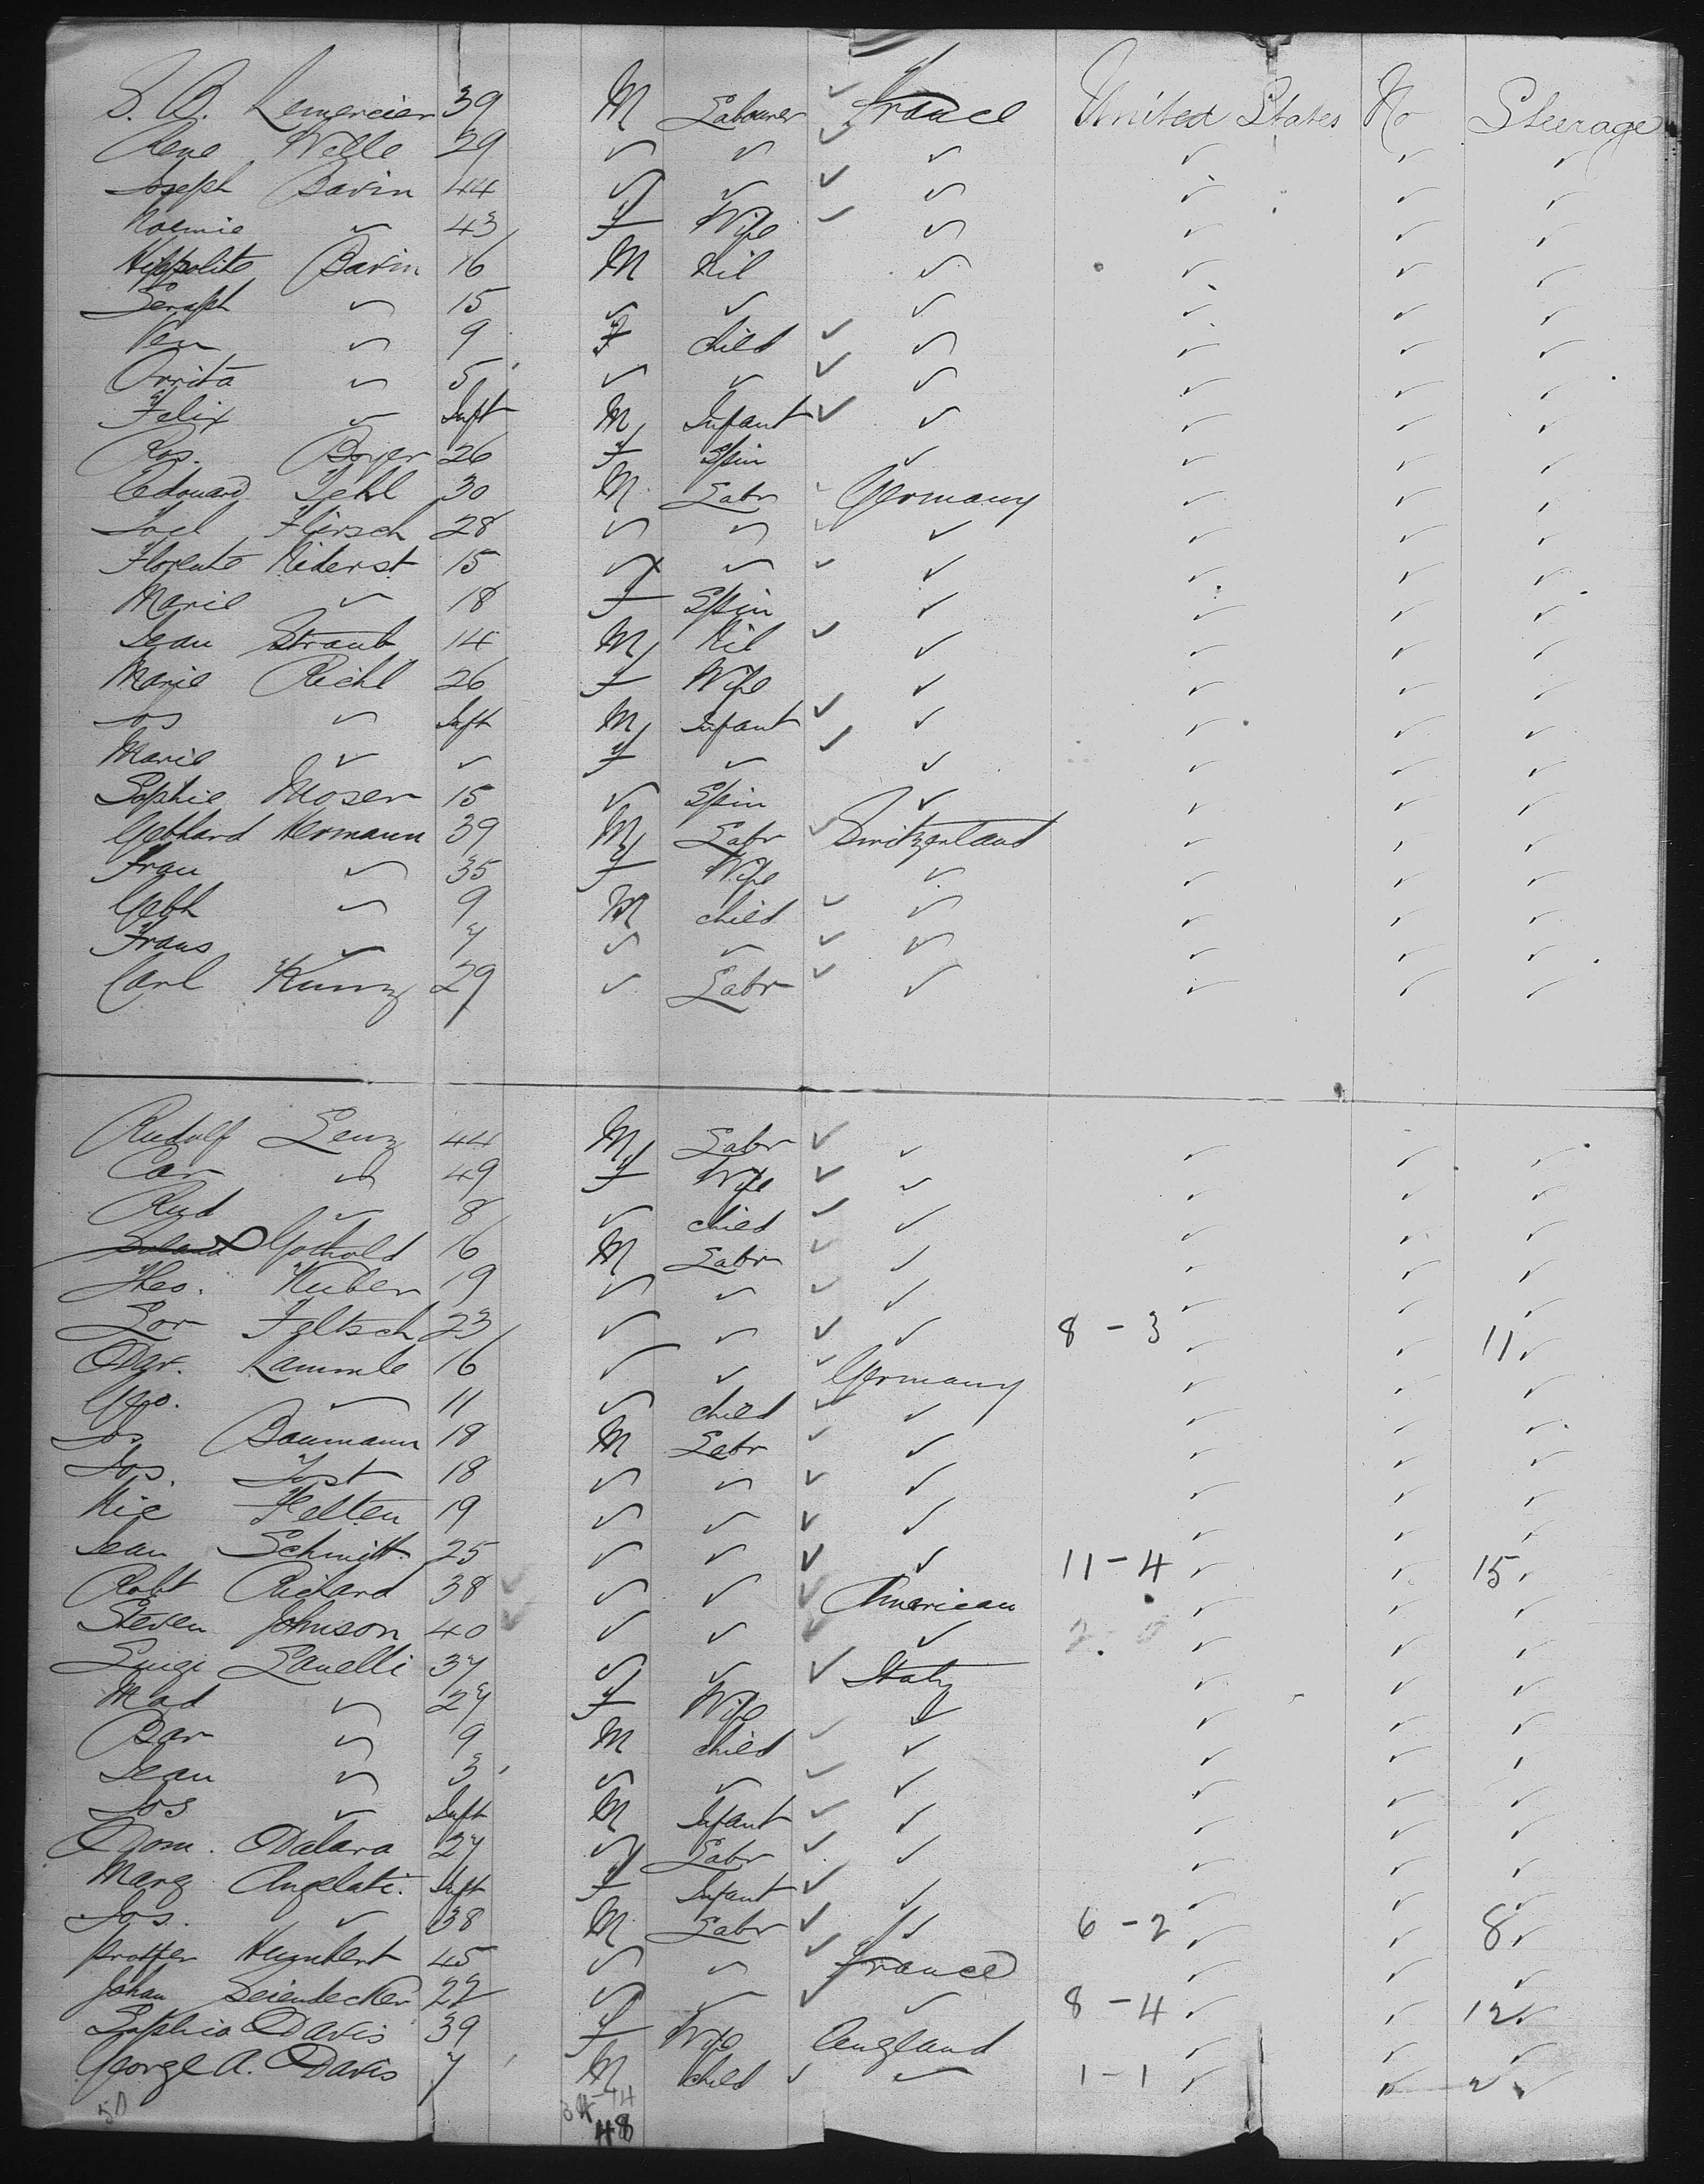 S. A. Lemercier 39 M Labourer ✓ France United States No Steerage
Rene Welle 29 ✓ ✓ ✓ ✓ ✓ ✓ ✓
Joseph Bavin 44 ✓ ✓ ✓ ✓ ✓ ✓ ✓
Noemie ✓ 43 F Wife ✓ ✓ ✓ ✓ ✓
Hippolite Bavin 16 M Nil ✓ ✓ ✓ ✓
Seraph ✓ 15 ✓ ✓ ✓ ✓ ✓ ✓
✓ 9 F child ✓ ✓ ✓ ✓ ✓
Orrita ✓ 5 ✓ ✓ ✓ ✓ ✓ ✓ ✓
Felix ✓ Inft M Infant ✓ ✓ ✓ ✓ ✓
Ros. Boyer 26 F Spin ✓ ✓ ✓ ✓
Edouard Pehl 30 M Labr ✓ Germany ✓ ✓ ✓
Joel Hirsch 28 ✓ ✓ ✓ ✓ ✓ ✓ ✓
Florente Niderst 15 ✓ ✓ ✓ ✓ ✓ ✓ ✓
Marie ✓ 18 F Spin ✓ ✓ ✓ ✓
Jean Straub 14 M Nil ✓ ✓ ✓ ✓ ✓
Marie Richl 26 F Wife ✓ ✓ ✓ ✓
Jos ✓ Inft M Infant ✓ ✓ ✓ ✓ ✓
Marie ✓ ✓ F ✓ ✓ ✓ ✓ ✓ ✓
Sophie Moser 15 ✓ Spin ✓ ✓ ✓ ✓
Gebhard Hermann 39 M Labr ✓ Switzerland ✓ ✓ ✓
Frau ✓ 35 F Wife ✓ ✓ ✓ ✓
Gebh ✓ 9 M child ✓ ✓ ✓ ✓ ✓
Frans ✓ 7 ✓ ✓ ✓ ✓ ✓ ✓ ✓
Carl Kunz 29 ✓ Labr ✓ ✓ ✓ ✓ ✓
Rudolf Lenz 44 M Labr ✓ ✓ ✓ ✓ ✓
Car ✓ 49 F Wife ✓ ✓ ✓ ✓ ✓
Rud ✓ 8 ✓ child ✓ ✓ ✓ ✓ ✓
Gothold 16 M Labr ✓ ✓ ✓ ✓ ✓
Theo. Huber 19 ✓ ✓ ✓ ✓ ✓ ✓ ✓
Lor Feltsch 23 ✓ ✓ ✓ ✓ 8 - 3 ✓ ✓ 11 ✓
Dav. Lammle 16 ✓ ✓ ✓ Germany ✓ ✓ ✓
Geo. ✓ 11 ✓ child ✓ ✓ ✓ ✓ ✓
Jos Baumann 18 M Labr ✓ ✓ ✓ ✓ ✓
Jos. Jost 18 ✓ ✓ ✓ ✓ ✓ ✓ ✓
Nic Helten 19 ✓ ✓ ✓ ✓ ✓ ✓ ✓
Jean Schmitt 25 ✓ ✓ ✓ ✓ 11 - 4 ✓ ✓ 15 ✓
Robt Richard 38 ✓ ✓ ✓ ✓ American ✓ ✓ ✓
Steven Johnson 40 ✓ ✓ ✓ ✓ ✓ ✓ ✓ ✓
Luigi Lanelli 37 ✓ ✓ ✓ Italy ✓ ✓ ✓
Mad ✓ 27 F Wife ✓ ✓ ✓ ✓
Bar ✓ 9 M child ✓ ✓ ✓ ✓ ✓
Jean ✓ 3 ✓ ✓ ✓ ✓ ✓ ✓ ✓
Jos ✓ Inft M Infant ✓ ✓ ✓ ✓ ✓
Dom. Dalara 27 ✓ Labr ✓ ✓ ✓ ✓ ✓
Marg Angelati. Inft F Infant ✓ ✓ ✓ ✓ ✓
Jos. ✓ 38 M Labr ✓ ✓ 6 - 2 ✓ ✓ 8 ✓
Humbert 45 ✓ ✓ ✓ France ✓ ✓ ✓
Johan Seiendecker 22 ✓ ✓ ✓ ✓ 8 - 4 ✓ ✓ 12 ✓
Sophia Davis 39 F Wife England ✓ ✓ ✓
George A. Davis 7 M child ✓ ✓ 1 - 1 ✓ ✓ 2 ✓
50 34 - 14
48